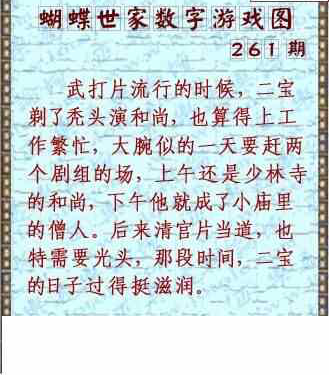 蝴蝶世家数字游戏图
261期
武打片流行的时候，二宝
剃了秃头演和尚，也算得上工
作繁忙，大腕似的一天要赶两
个剧组的场，上午还是少林寺
的和尚，下午他就成了小庙里
的僧人。后来清官片当道，也
特需要光头，那段时间，二宝
的日子过得挺滋润。